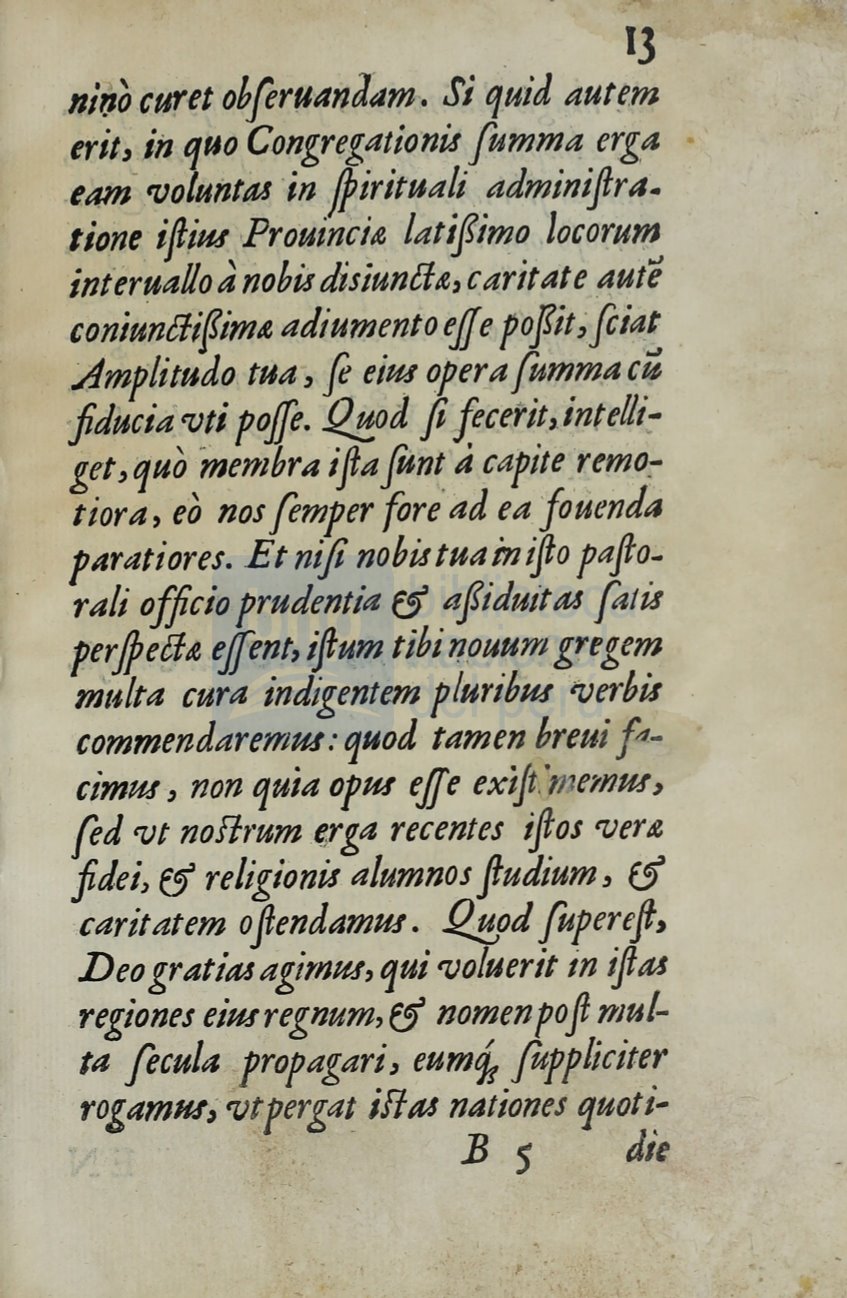 13
ninò curet obſeruandam. Si quid autem
erit, in quo Congregationis ſumma erga
eam voluntas in ſpirituali adminiſtra-
tione iſtius Prouinciæ latiſſimo locorum
interuallo à nobis disiunctæ, caritate autē
coniunctiſſimæ adiumento eſſe poſſit, ſciat
Amplitudo tua, ſe eius opera ſumma cū
fiducia vti poſſe. Quod ſi fecerit, intelli-
get, quò membra iſta ſunt à capite remo-
tiora, eò nos ſemper fore ad ea fouenda
paratiores. Et niſi nobis tua in iſto paſto-
rali officio prudentia & aſſiduitas ſatis
perſpectæ eſſent, iſtum tibi nouum gregem
multa cura indigentem pluribus verbis
commendaremus: quod tamen breui fa-
cimus, non quia opus eſſe exiſtimemus,
ſed vt noſtrum erga recentes iſtos veræ
fidei, & religionis alumnos ſtudium, &
caritatem oſtendamus. Quod ſupereſt,
Deo gratias agimus, qui voluerit in iſtas
regiones eius regnum, & nomen poſt mul-
ta ſecula propagari, eumq́; ſuppliciter
rogamus, vt pergat iſtas nationes quoti-
B 5 die